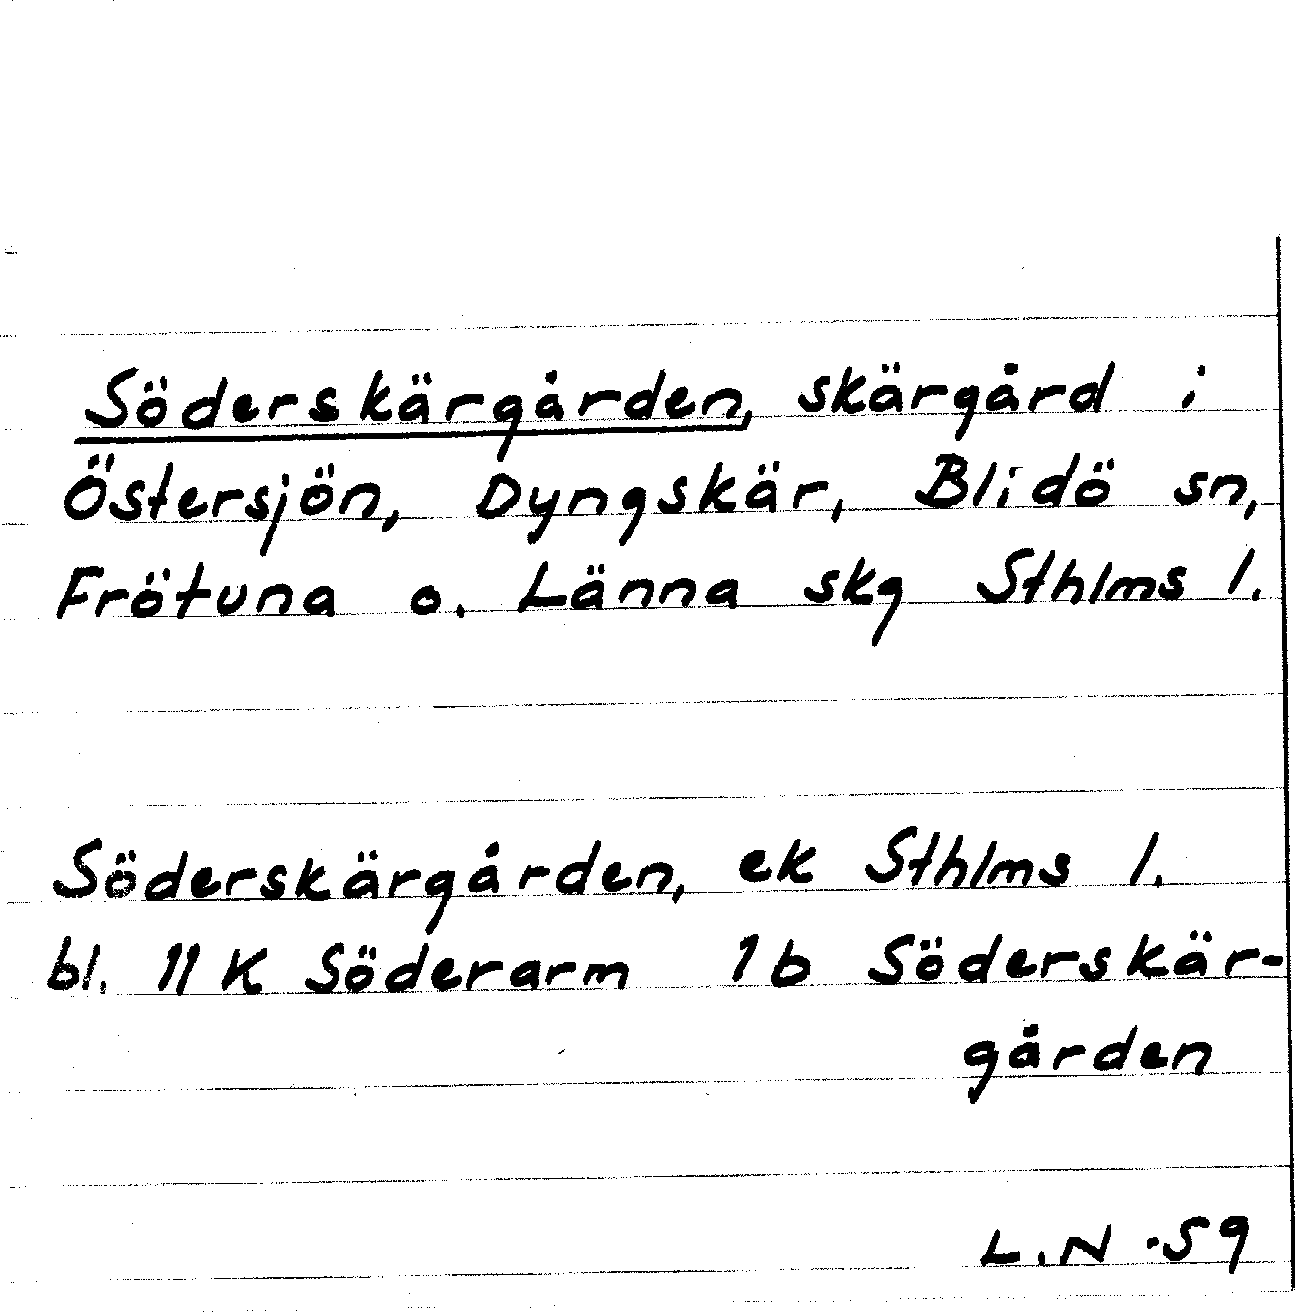 Söderskärgården, skärgård i
Östersjön, Dyngskär, Blidö sn,
Frötuna o. Länna skg Sthlms l.
Söderskärgården, ek Sthlms l.
bl. 11 K Söderarm 1b Söderskär-
gården
L.N -59